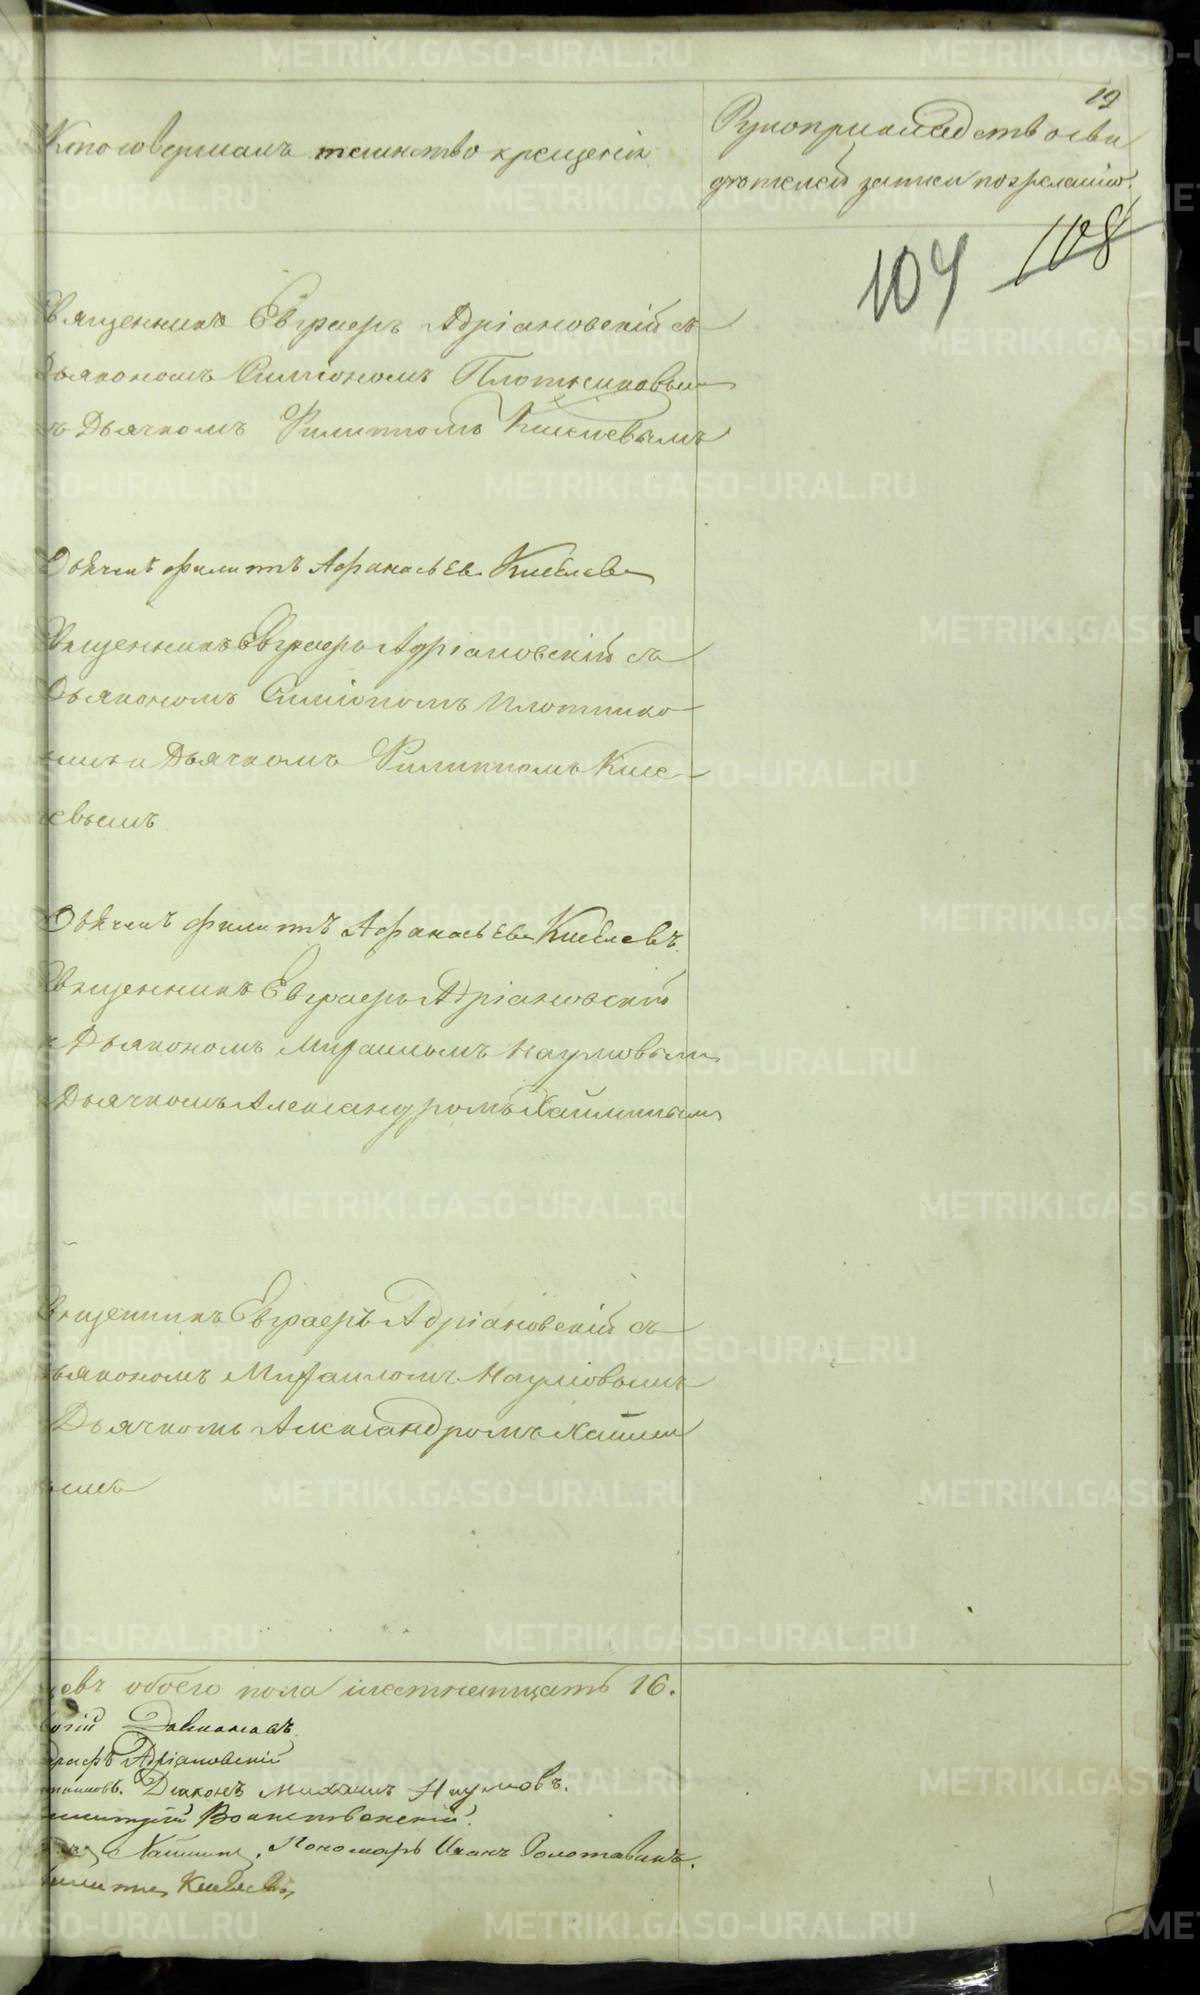 19
Кто совершалъ таинство крещенія
Рукоприкладство сви
дѣтелей записи по желанію.
104 108
Священникъ Евграфъ Адріановскій съ
Дьякономъ Симіономъ Плотниковым
Дьячкомъ Филиппомъ Киселевымъ
Дьячекъ Филиппъ Афанасьевъ Киселевъ
Священникъ Евграфъ Адріановскій съ
Дьякономъ Симіономъ Плотнико
и Дьячкомъ Филиппомъ Кисе
евымъ
Дьячекъ Филиппъ Афанасьевъ Киселевъ.
Священникъ Евграфъ Адріановскій
Дьякономъ Михаиломъ Наумовымъ
Дьячкомъ Александромъ
Священникъ Евграфъ Адріановскій съ
Дьякономъ Михаиломъ Наумовымъ
Дьячкомъ Александромъ
обоего пола шестнатцать 16.
Адріановскій
Діаконъ Михаилъ Наумовъ.
Пономарь Иванъ
Киселевъ
METRIKI.GASO-URAL.RU